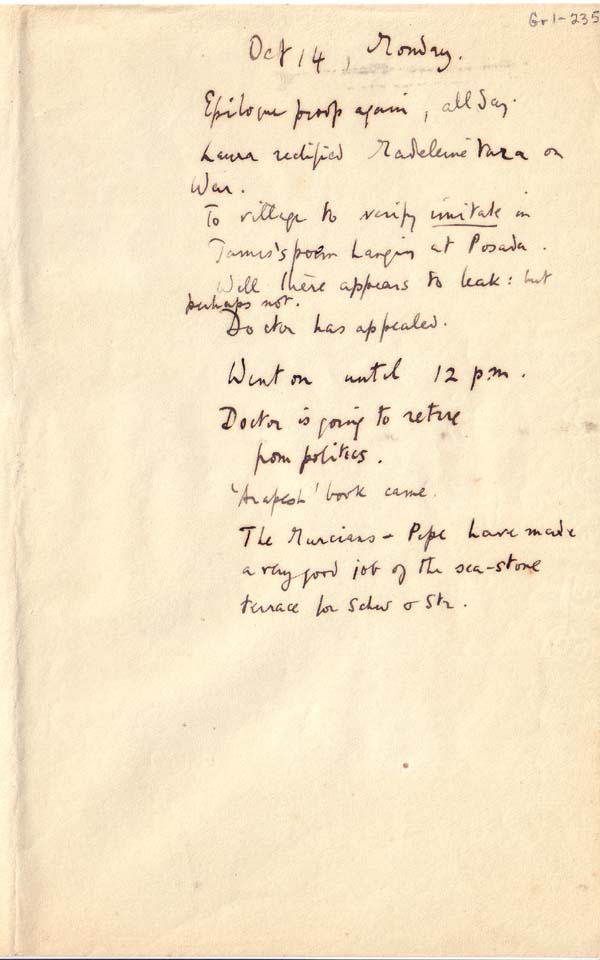 Gr1-235
Oct 14, Monday.
Epilogue proofs again, all day.
Laura rectified Madeleine Vara on
War.
To village to verify imitate in
James's poem hanging at Posada.
Well there appears to leak: but
perhaps not.
Doctor has appealed.
Went on until 12 p.m.
Doctor is going to retire
from politics.
'Arapesh' book came.
The Murcians + Pepe have made
a very good job of the sea-stone
terrace for